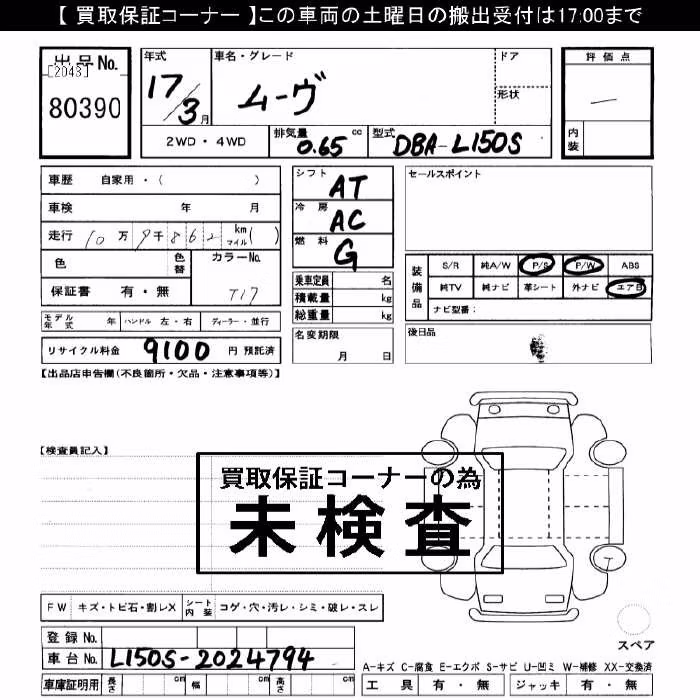 【 買取保証コーナー 】この車両の土曜日の搬出受付は17:00まで
出品No. [2043] 80390
年式 17/3月
車名・グレード ムーヴ
ドア
形状
評価点 —
内装
2WD・4WD
排気量 0.65 cc
型式 DBA-L150S
車歴 自家用・( )
車検 年 月
走行 10万9千862 km マイル( )
色 色替 カラーNo. T17
保証書 有・無
モデル年式 年 ハンドル 左・右 ディーラー・並行
リサイクル料金 9100 円 預託済
シフト AT
冷房 AC
燃料 G
乗車定員 名
積載量 kg
総重量 kg
名変期限 月 日
セールスポイント
装備品 S/R 純A/W P/S P/W ABS
純TV 純ナビ 革シート 外ナビ エアB
ナビ型番:
後日品
【出品店申告欄(不良箇所・欠品・注意事項等)】
【検査員記入】
買取保証コーナーの為
未検査
FW キズ・トビ石・割レX シート内装 コゲ・穴・汚レ・シミ・破レ・スレ
登録No.
車台No. L150S-2024794
車庫証明用 長さ cm 幅 cm 高さ cm
スペア
A-キズ C-腐食 E-エクボ S-サビ U-凹ミ W-補修 XX-交換済
工具 有・無 ジャッキ 有・無